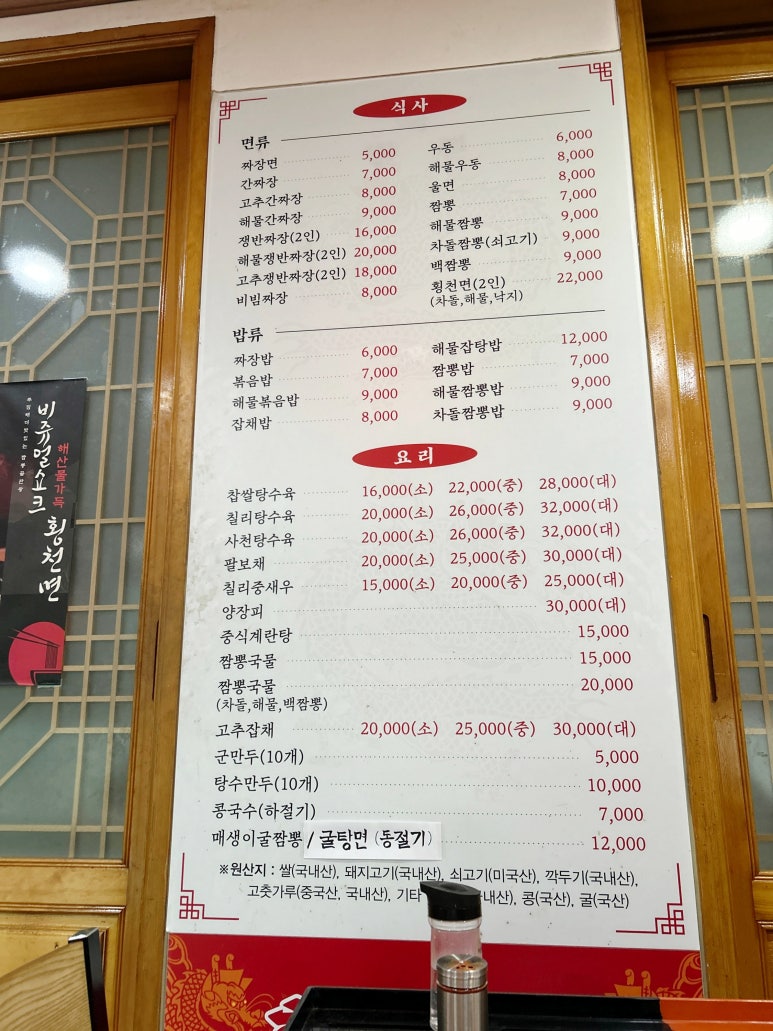 식사
면류
짜장면 5,000
간짜장 7,000
고추간짜장 8,000
해물간짜장 9,000
쟁반짜장(2인) 16,000
해물쟁반짜장(2인) 20,000
고추쟁반짜장(2인) 18,000
비빔짜장 8,000
우동 6,000
해물우동 8,000
울면 8,000
짬뽕 7,000
해물짬뽕 9,000
차돌짬뽕(쇠고기) 9,000
백짬뽕 9,000
횡천면(2인) 22,000
(차돌,해물,낙지)
밥류
짜장밥 6,000
볶음밥 7,000
해물볶음밥 9,000
잡채밥 8,000
해물잡탕밥 12,000
짬뽕밥 7,000
해물짬뽕밥 9,000
차돌짬뽕밥 9,000
요리
찹쌀탕수육 16,000(소) 22,000(중) 28,000(대)
칠리탕수육 20,000(소) 26,000(중) 32,000(대)
사천탕수육 20,000(소) 26,000(중) 32,000(대)
팔보채 20,000(소) 25,000(중) 30,000(대)
칠리중새우 15,000(소) 20,000(중) 25,000(대)
양장피 30,000(대)
중식계란탕 15,000
짬뽕국물 15,000
짬뽕국물 20,000
(차돌,해물,백짬뽕)
고추잡채 20,000(소) 25,000(중) 30,000(대)
군만두(10개) 5,000
탕수만두(10개) 10,000
콩국수(하절기) 7,000
매생이굴짬뽕 / 굴탕면 (동절기) 12,000
※원산지 : 쌀(국내산), 돼지고기(국내산), 쇠고기(미국산), 깍두기(국내산),
고춧가루(중국산, 국내산), 기타 내산), 콩(국산), 굴(국산)
해산물가득
비쥬얼쇼크 횡천면